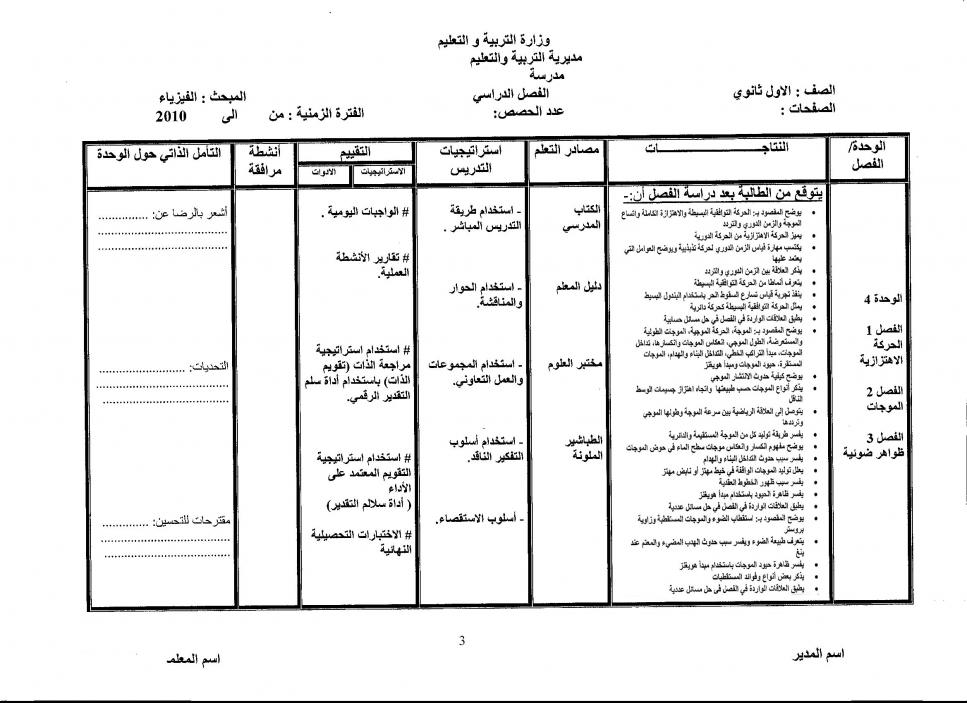 وزارة التربية و التعليم
مديرية التربية والتعليم
مدرسة
الصف : الاول ثانوي
الفصل الدراسي
المبحث : الفيزياء
الصفحات :
عدد الحصص:
الفترة الزمنية : من الى 2010
الوحدة/
الفصل
النتاجـــــــــــــات
مصادر التعلم
استراتيجيات
التدريس
التقييم
الاستراتيجيات
الادوات
أنشطة
مرافقة
التأمل الذاتي حول الوحدة
الوحدة 4
الفصل 1
الحركة
الاهتزازية
الفصل 2
الموجات
الفصل 3
ظواهر ضوئية
يتوقع من الطالبة بعد دراسة الفصل أن:-
• يوضح المقصود بـ: الحركة التوافقية البسيطة والاهتزازة الكاملة واتساع
الموجة والزمن الدوري والتردد
• يميز الحركة الاهتزازية من الحركة الدورية
• يكتسب مهارة قياس الزمن الدوري لحركة تذبذبية ويوضح العوامل التي
يعتمد عليها
• يذكر العلاقة بين الزمن الدوري والتردد
• يتعرف أنماطا من الحركة التوافقية البسيطة
• ينفذ تجربة قياس تسارع السقوط الحر باستخدام البندول البسيط
• يمثل الحركة التوافقية البسيطة كحركة دائرية
• يطبق العلاقات الواردة في الفصل في حل مسائل حسابية
• يوضح المقصود بـ: الموجة، الحركة الموجية، الموجات الطولية
والمستعرضة، الطول الموجي، انعكاس الموجات وانكسارها، تداخل
الموجات، مبدأ التراكب الخطي، التداخل البناء والهدام، الموجات
المستقرة، حيود الموجات ومبدأ هويغنز
• يوضح كيفية حدوث الانتشار الموجي
• يذكر أنواع الموجات حسب طبيعتها واتجاه اهتزاز جسيمات الوسط
الناقل
• يتوصل إلى العلاقة الرياضية بين سرعة الموجة وطولها الموجي
وترددها
• يفسر طريقة توليد كل من الموجة المستقيمة والدائرية
• يوضح مفهوم انكسار وانعكاس موجات سطح الماء في حوض الموجات
• يفسر سبب حدوث التداخل البناء والهدام
• يعلل توليد الموجات الواقفة في خيط مهتز أو نابض مهتز
• يفسر سبب ظهور الخطوط العقدية
• يفسر ظاهرة الحيود باستخدام مبدأ هويغنز
• يطبق العلاقات الواردة في الفصل في حل مسائل عددية
• يوضح المقصود بـ: استقطاب الضوء والموجات المستقطبة وزاوية
بروستر
• يتعرف طبيعة الضوء ويفسر سبب حدوث الهدب المضيء والمعتم عند
ينغ
• يفسر ظاهرة حيود الموجات باستخدام مبدأ هويغنز
• يذكر بعض أنواع وفوائد المستقطبات
• يطبق العلاقات الواردة في الفصل في حل مسائل عددية
الكتاب
المدرسي
دليل المعلم
مختبر العلوم
الطباشير
الملونة
- استخدام طريقة
التدريس المباشر .
- استخدام الحوار
والمناقشة.
- استخدام المجموعات
والعمل التعاوني.
- استخدام أسلوب
التفكير الناقد.
- أسلوب الاستقصاء.
# الواجبات اليومية .
# تقارير الأنشطة
العملية.
# استخدام استراتيجية
مراجعة الذات (تقويم
الذات) باستخدام أداة سلم
التقدير الرقمي.
# استخدام استراتيجية
التقويم المعتمد على
الأداء
( أداة سلالم التقدير)
# الاختبارات التحصيلية
النهائية
أشعر بالرضا عن: ..............
..............................
..............................
التحديات: ......................
..............................
..............................
مقترحات للتحسين: ..............
..............................
..............................
3
اسم المدير
اسم المعلمـ